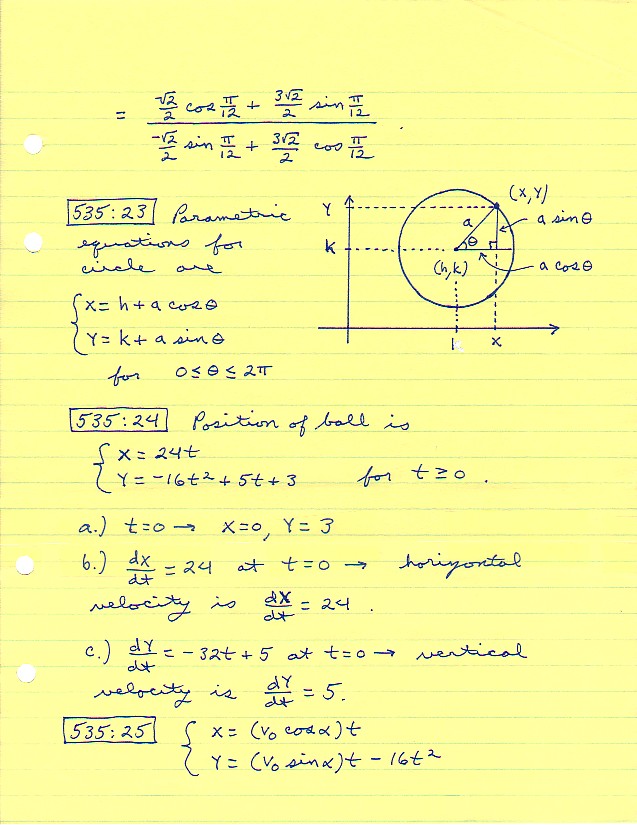 = (√2/2 cos π/12 + 3√2/2 sin π/12) / (-√2/2 sin π/12 + 3√2/2 cos π/12) .
535:23 Parametric
equations for
circle are
{ X = h + a cos θ
Y = k + a sin θ
for 0 ≤ θ ≤ 2π
(X,Y)
Y
a
a sin θ
k
θ
(h,k)
a cos θ
x
535:24 Position of ball is
{ X = 24t
Y = -16t² + 5t + 3 for t ≥ 0 .
a.) t=0 → X=0, Y=3
b.) dX/dt = 24 at t=0 → horizontal
velocity is dX/dt = 24 .
c.) dY/dt = -32t + 5 at t=0 → vertical
velocity is dY/dt = 5.
535:25 { X = (v₀ cos α)t
Y = (v₀ sin α)t - 16t²